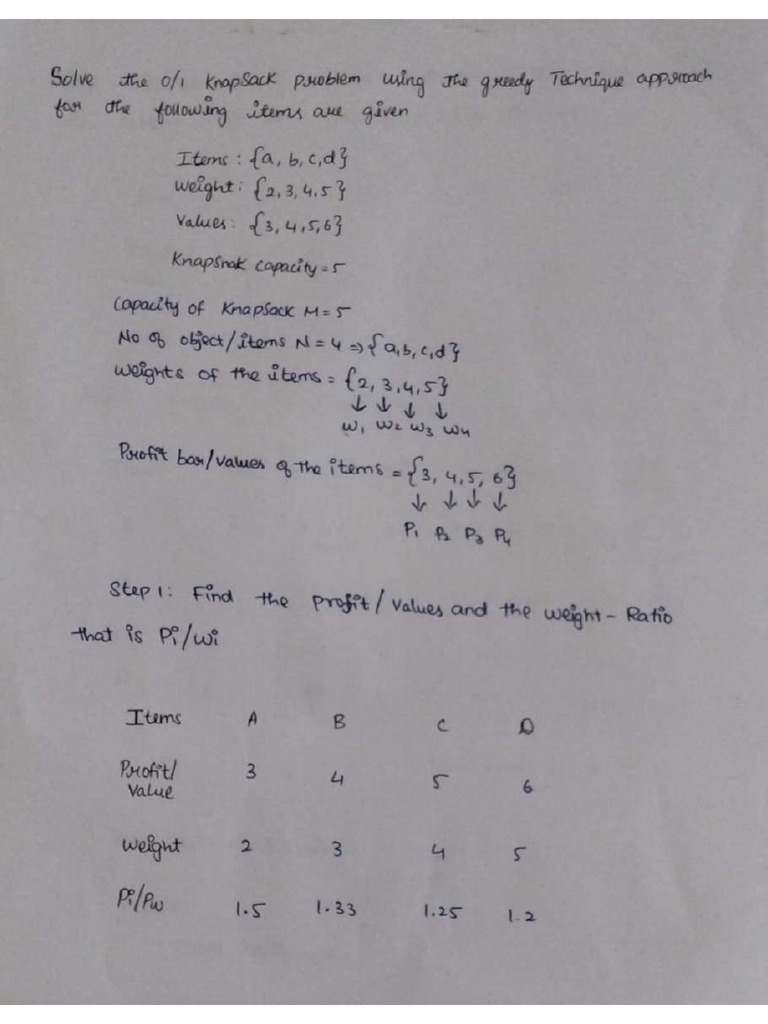 Solve the 0/1 KnapSack problem using the greedy Technique approach
for the following items are given
Items : {a, b, c, d}
Weight : {2, 3, 4, 5}
Values : {3, 4, 5, 6}
KnapSnak capacity = 5
Capacity of KnapSack M = 5
No of object/items N = 4 => {a, b, c, d}
Weights of the items = {2, 3, 4, 5}
↓ ↓ ↓ ↓
w1 w2 w3 w4
Profit bar/values of the items = {3, 4, 5, 6}
↓ ↓ ↓ ↓
P1 P2 P3 P4
Step 1: Find the profit / values and the weight - Ratio
that is Pi/wi
Items A B C D
Profit/ 3 4 5 6
Value
weight 2 3 4 5
Pi/Pw 1.5 1.33 1.25 1.2